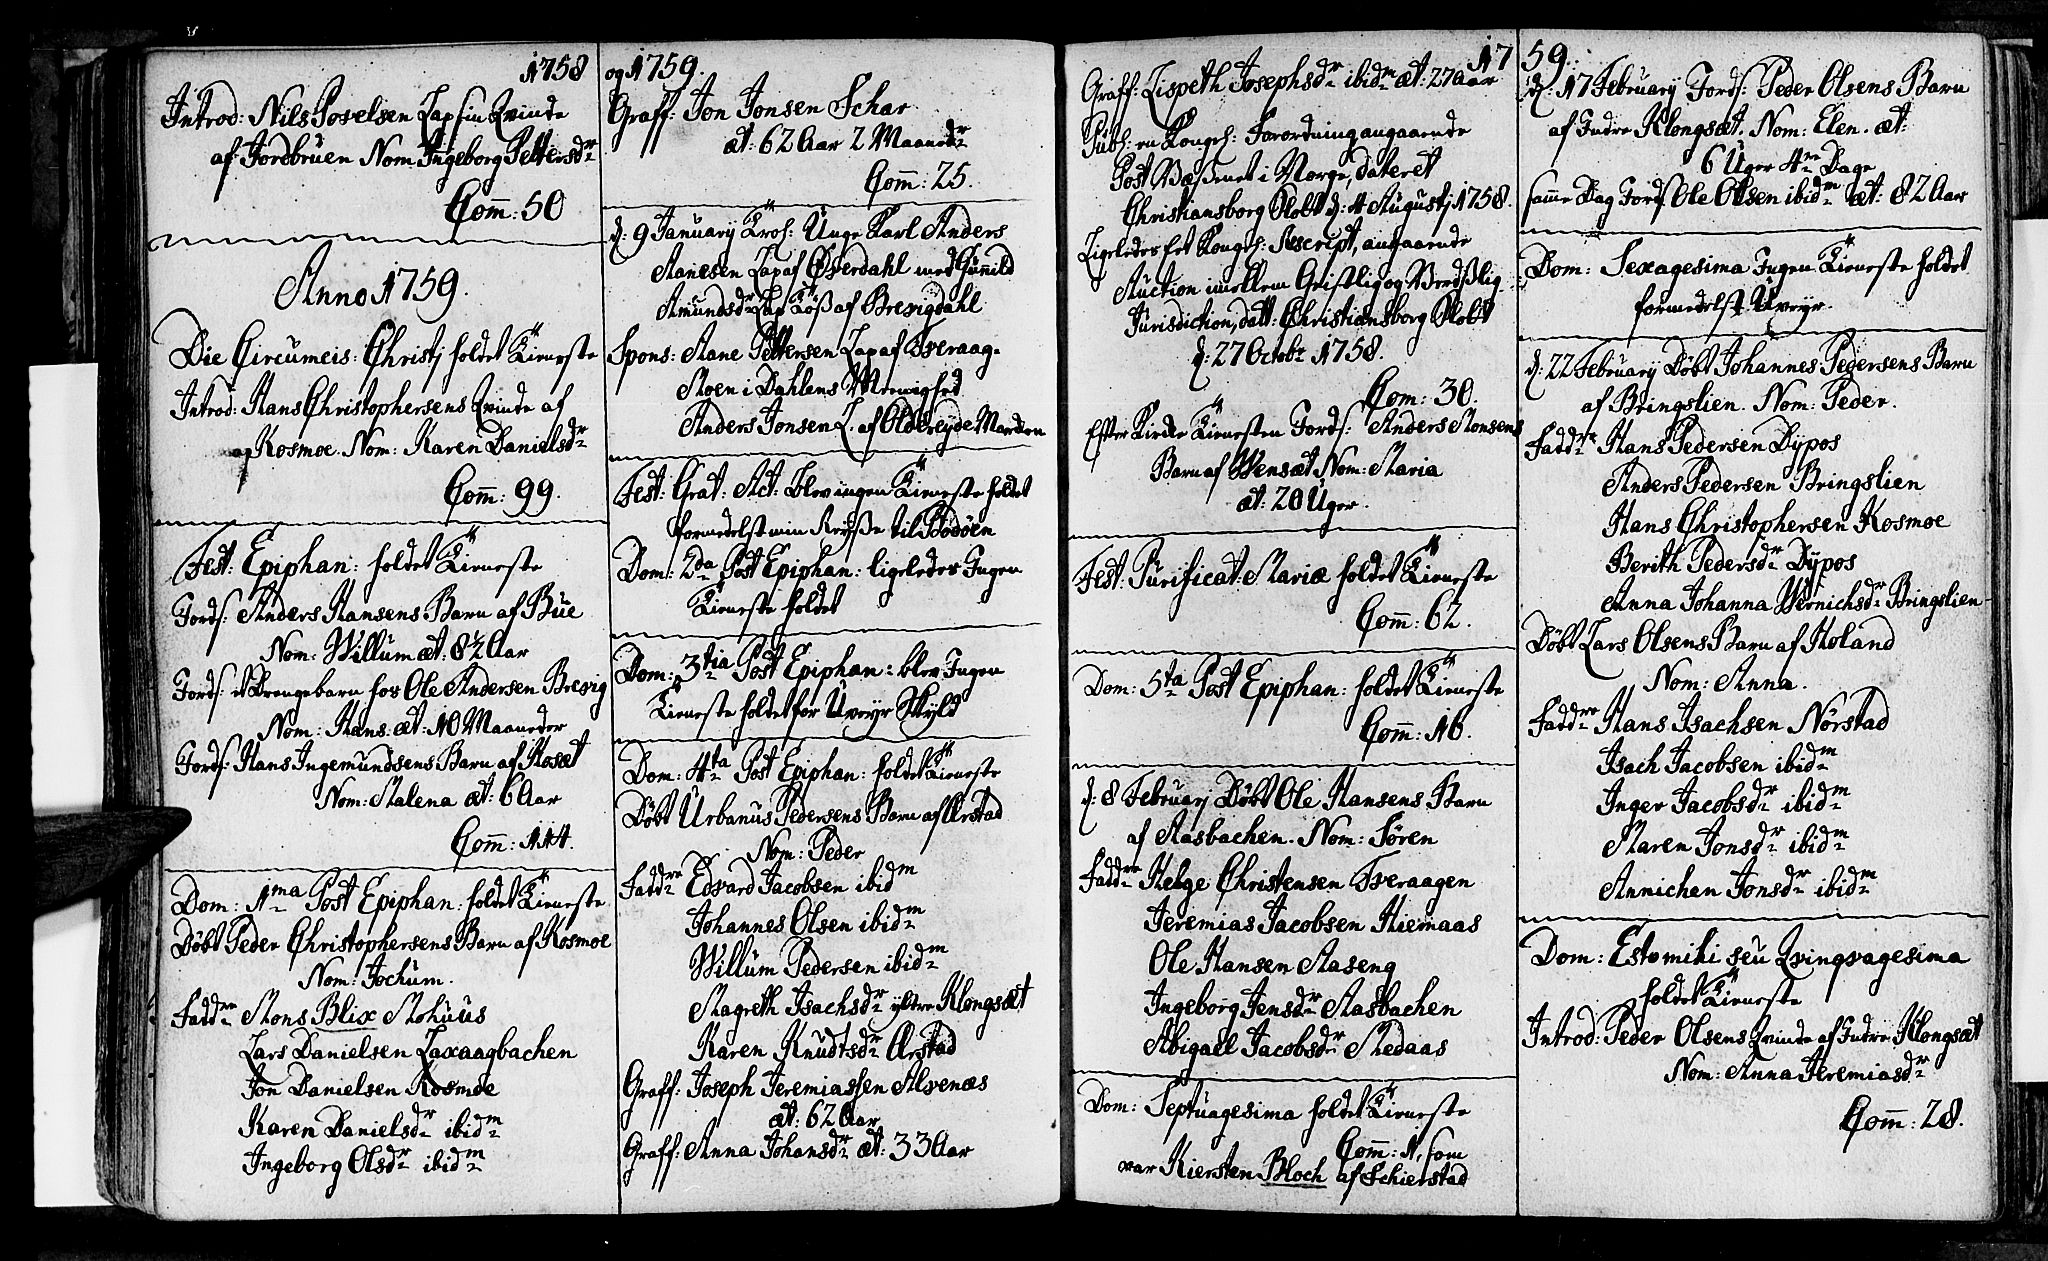 1758
Introd: Nils Povelsen Lap fin Qvinde
af Jordbruen Nom Ingeborg Pettersdr
Com: 50
Anno 1759.
Die Circumcis: Christj holdet Tieneste
Introd: Hans Christophersens Qvinde af
Kosmoe. Nom: Karen Danielsdr
Com: 99.
Fest: Epiphan: holdet Tieneste
Jords: Anders Hansens Barn af Bue
Nom: Willum æt: 8½ Aar
Jords: et Drengebarn hos Ole Andersen Brevig
Nom: Hans. æt: 10 Maaneder
Jords: Hans Ingemundsens Barn af Hosæt
Nom: Malena æt: 6 Aar
Com: 114.
Dom: 1ma Post Epiphan: holdet Tieneste
Døbt Peder Christophersens Barn af Kosmoe
Nom: Jochum.
Faddre Mons Blix Mohuus
Lars Danielsen Laxaagbachen
Jon Danielsen Kosmoe
Karen Danielsdr ibidm
Ingeborg Olsdr ibidm
og 1759.
Graff: Jon Jonsen Schar
æt: 62 Aar 2 Maandr
Com: 25.
d: 9 January Kroh: Unge Karl Anders
Aanesen Lap af Øverdahl med Gunild
Amundsdr Lap Tøß af Brevigdahl
Spons: Aane Pettersen Lap af Tveraag-
Moen i Dahlens Menighed
Anders Jonsen L. af Oldereyde Marchen
Fest: Grat: Act: blev ingen Tieneste holdet
formedelst min Reyße til Bodøen
Dom: 2da Post Epiphan: ligeledes Ingen
Tieneste holdet
Dom: 3tia Post Epiphan: blev Ingen
Tieneste holdet for Uveyr Skyld
Dom: 4ta Post Epiphan: holdet Tieneste
Døbt Urbanus Pedersens Barn af Arstad
Nom: Peder
Faddre Edvard Jacobsen ibidm
Johannes Olsen ibidm
Willum Pedersen ibidm
Magreth Isachsdr yttre Klongsæt
Karen Knudtsdr Arstad
Graff: Joseph Jeremiassen Alvenæs
æt: 62 Aar
Graff: Anna Johansdr æt: 33 Aar
17
Graff: Lispeth Josephsdr ibidm æt: 27 Aar
Publ: en Kongel: Forordning angaaende
Post Væßenet i Norge, dateret
Christiansborg Slot d: 4 Augustj 1758.
Ligeledes et Kongel: Rescript, angaaende
Auction imellem Geistlig og Verdßlig
Jurisdiction, datt: Christiansborg Slot
d: 27 Octobr 1758.
Com: 30.
Efter Kirke Tienesten Jords: Anders Monsens
Barn af Wensæt Nom: Maria
æt: 20 Uger.
Fest: Purificat: Mariæ holdet Tieneste
Com: 62.
Dom: 5ta Post Epiphan: holdet Tieneste
Com: 16.
d: 8 February Døbt Ole Hansens Barn
af Aasbachen. Nom: Søren
Faddre Helge Christensen Tveraagen
Jeremias Jacobsen Hiemaas
Ole Hansen Aaseng
Ingeborg Jensdr Aasbachen
Abigael Jacobsdr Medaas
Dom: Septuagesima holdet Tieneste
Com: 1, som
var Kiersten Bloch af Schierstad
59.
d: 17 February Jords: Peder Olsens Barn
af Indre Klongsæt. Nom: Elen. æt:
6 Uger 4re Dage
samme Dag Jords Ole Olsen ibidm æt: 82 Aar
Dom: Sexagesima Ingen Tieneste holdet
formedelst Uveyr.
d: 22 February Døbt Johannes Pedersens Barn
af Bringslien. Nom: Peder.
Faddre Hans Pedersen Dypos
Anders Pedersen Bringslien
Hans Christophersen Kosmoe
Berith Pedersdr Dypos
Anna Johanna Wernichsdr Bringslien
Døbt Lars Olsens Barn af Holand
Nom: Anna.
Faddre Hans Isachsen Nørstad
Isach Jacobsen ibidm
Inger Jacobsdr ibidm
Maren Jonsdr ibidm
Annichen Jonsdr ibidm
Dom: Estomihi seu Qvingvagesima
holdet Tieneste
Introd: Peder Olsens Qvinde af Indre Klongsæt
Nom: Anna Jeremiasdr
Com: 28.